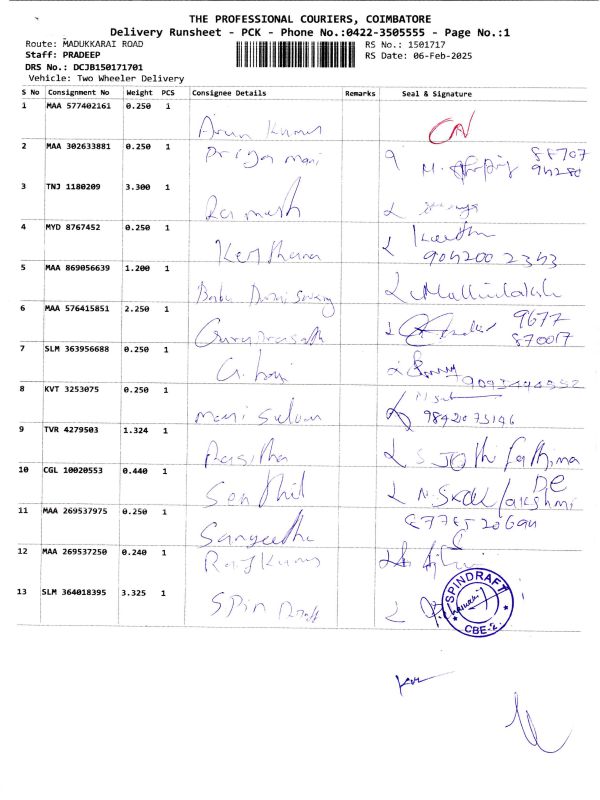 THE PROFESSIONAL COURIERS, COIMBATORE
Delivery Runsheet - PCK - Phone No.:0422-3505555 - Page No.:1
Route: MADUKKARAI ROAD
RS No.: 1501717
Staff: PRADEEP
RS Date: 06-Feb-2025
DRS No.: DCJB150171701
Vehicle: Two Wheeler Delivery
S No Consignment No Weight PCS Consignee Details Remarks Seal & Signature
1 MAA 577402161 0.250 1
Arun Kumar
2 MAA 302633881 0.250 1
Priya mani
88707
3 TNJ 1180209 3.300 1
Ramesh
4 MYD 8767452 0.250 1
Keerthana
904200 2343
5 MAA 869056639 1.200 1
6 MAA 576415851 2.250 1
Guruprasath
9677
870017
7 SLM 363956688 0.250 1
8 KVT 3253075 0.250 1
Mani Selvan
9842073146
9 TVR 4279503 1.324 1
S JOthi fathima
10 CGL 10020553 0.440 1
Senthil
11 MAA 269537975 0.250 1
Sangeetha
12 MAA 269537250 0.240 1
Raj Kumar
13 SLM 364018395 3.325 1
Spin Draft
SPINDRAFT
CBE-2.